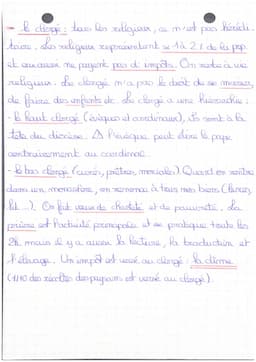 - le clergé : tous les religieux, ce n'est pas hérédi-
taire. Les religieux représentent 1 à 2 % de la pop
et eux aussi ne payent pas d'impôts. On reste à vie
religieux. Le clergé n'a pas le droit de se marier,
de faire des enfants etc. Le clergé a une hiérarchie :
- le haut clergé (évêques et cardinaux), ils sont à la
tête du diocèse. ⚠ l'évêque peut élire le pape
contrairement au cardinal.
- le bas clergé (curés, prêtres, moniales). Quand on rentre
dans un monastère, on renonce à tous nos biens (
lit ...). On fait vœux de chasteté et de pauvreté. La
prière est l'activité principale et se pratique toute les
2h mais il y a aussi la lecture, la traduction et
l'élevage. Un impôt est versé au clergé : la dîme
(1/10 des récoltes des paysans est versé au clergé).